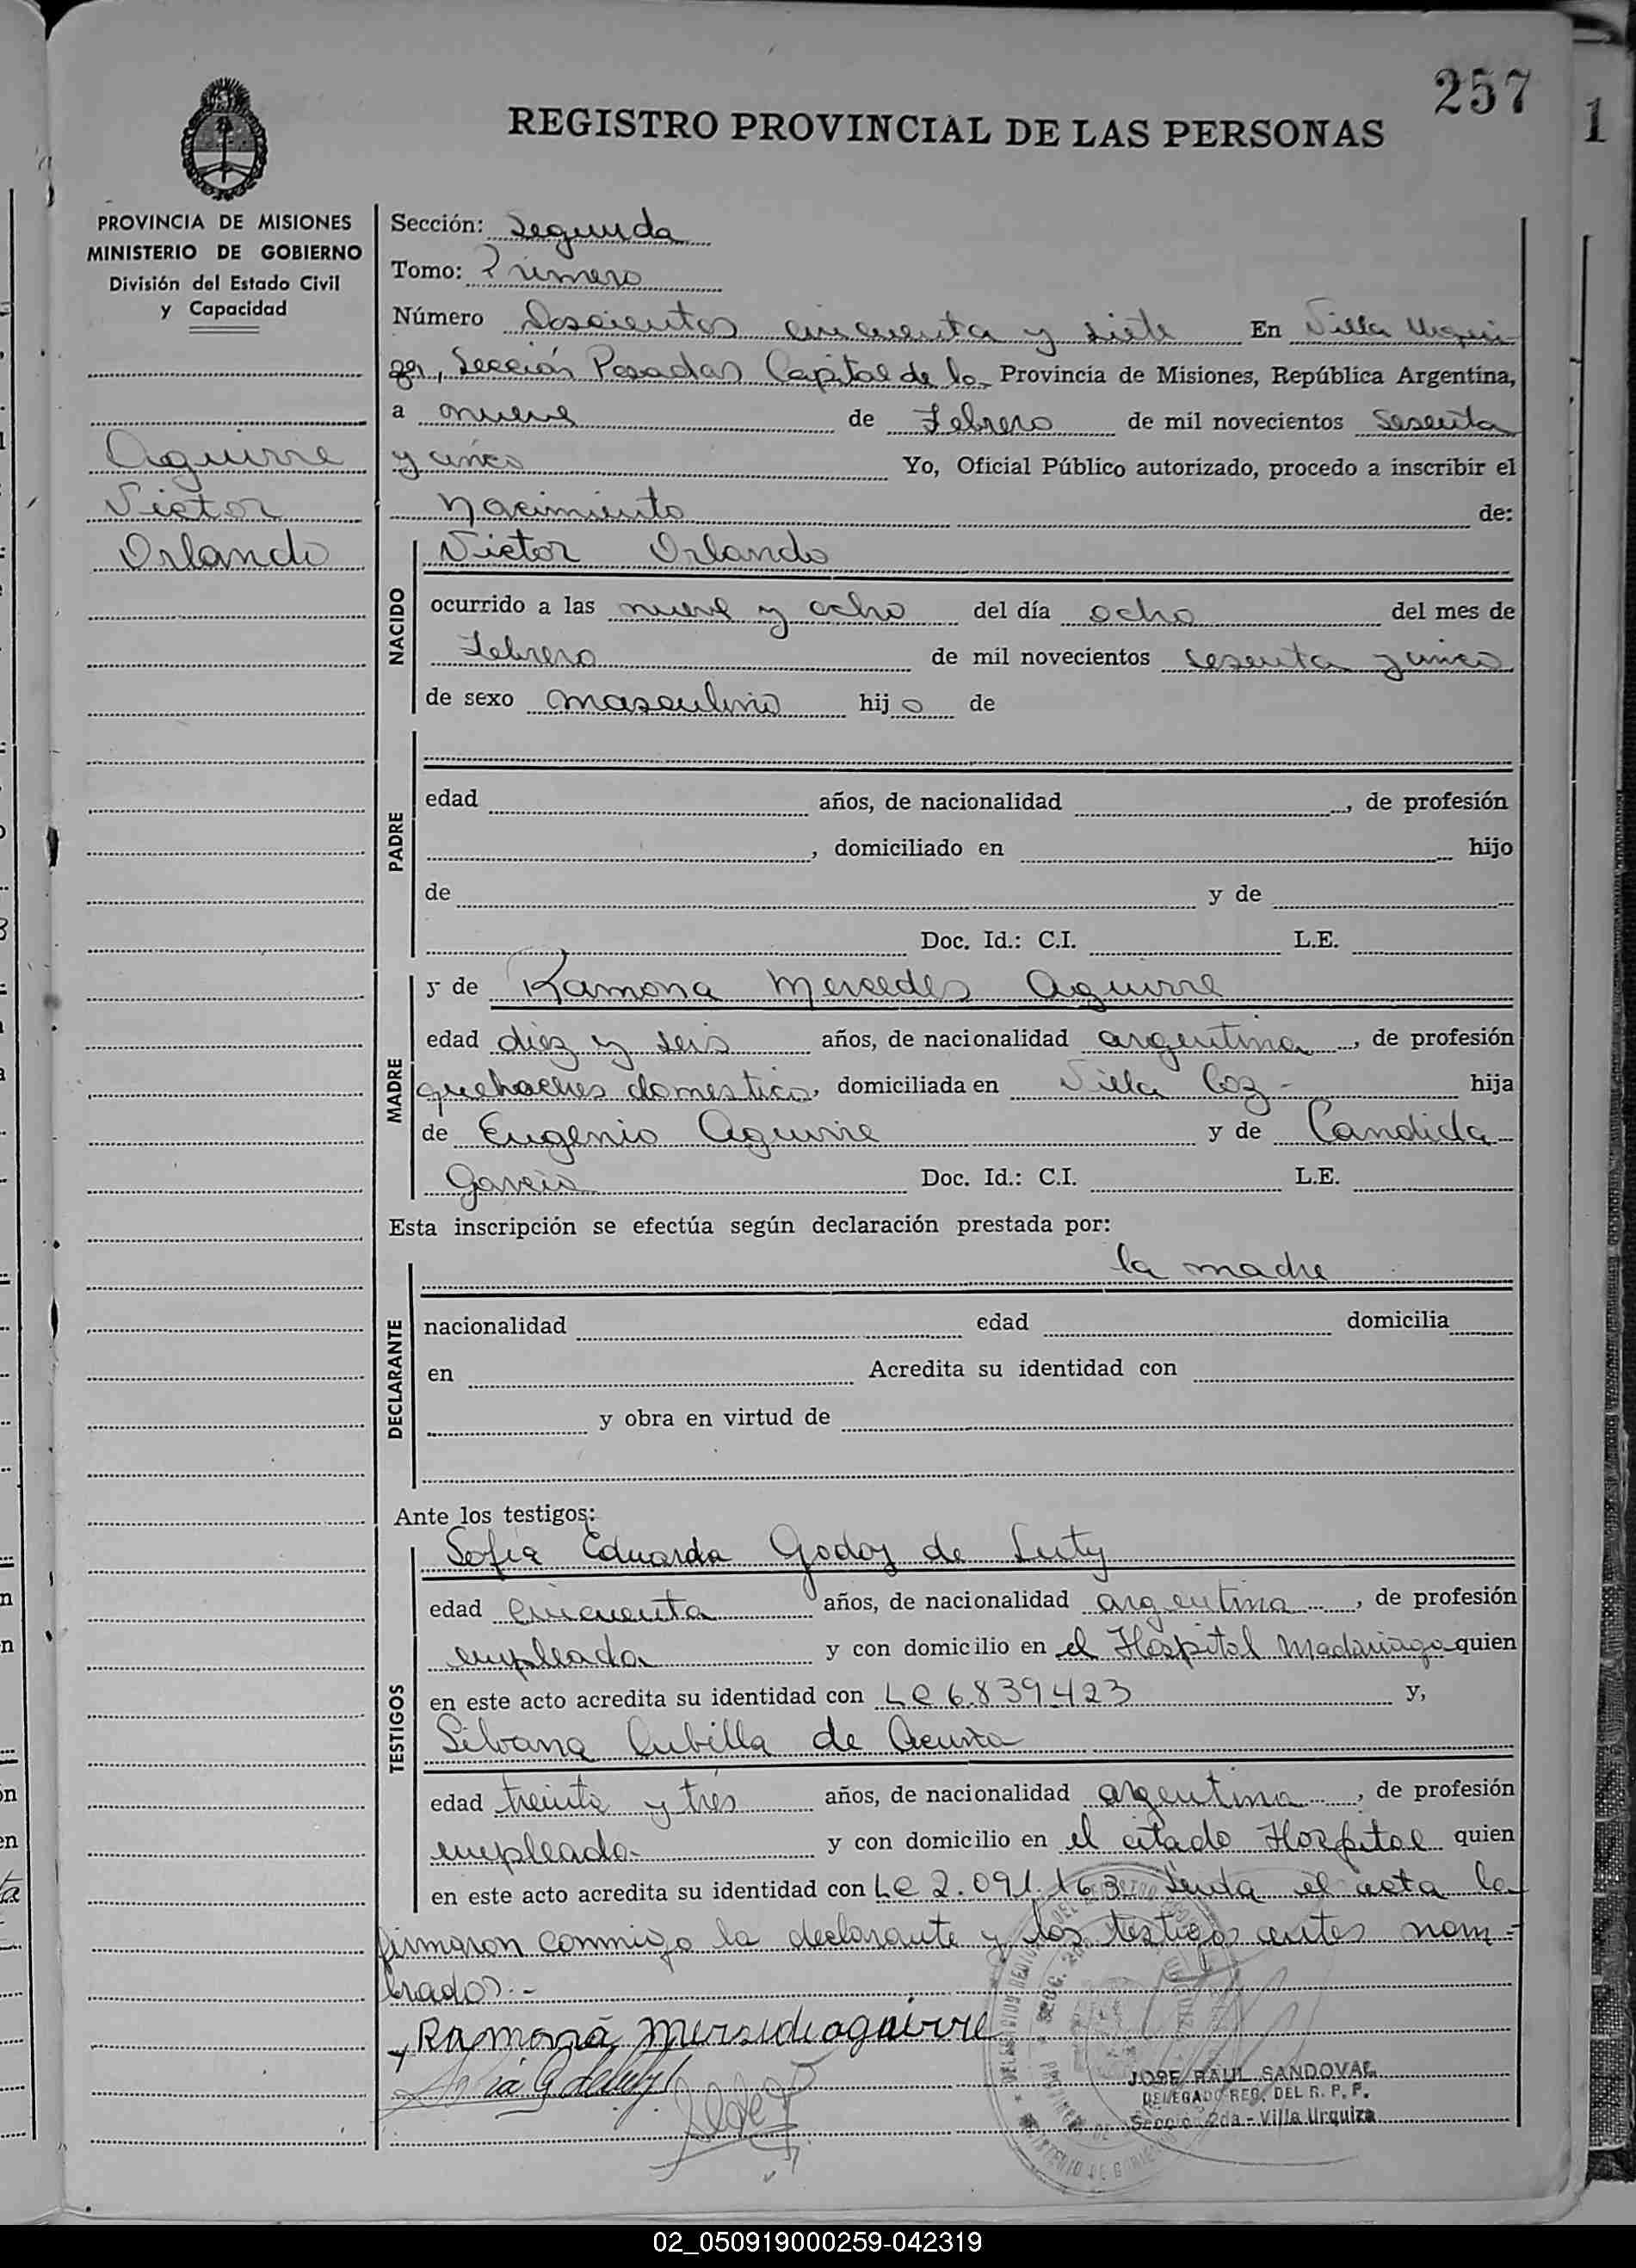 257
REGISTRO PROVINCIAL DE LAS PERSONAS
1
PROVINCIA DE MISIONES
MINISTERIO DE GOBIERNO
División del Estado Civil
y Capacidad
Aguirre
Victor
Orlando
Sección: Segunda
Tomo: Primero
Número Doscientos cincuenta y siete En Villa Urqui
za, Sección Posadas Capital de la Provincia de Misiones, República Argentina,
a nueve de Febrero de mil novecientos sesenta
y cinco Yo, Oficial Público autorizado, procedo a inscribir el
Nacimiento de:
NACIDO
Victor Orlando
ocurrido a las nueve y ocho del día ocho del mes de
Febrero de mil novecientos sesenta y cinco
de sexo masculino hijo de
PADRE
edad años, de nacionalidad , de profesión
, domiciliado en hijo
de y de
Doc. Id.: C.I. L.E.
MADRE
y de Ramona Mercedes Aguirre
edad diez y seis años, de nacionalidad argentina, de profesión
quehaceres domestico, domiciliada en Villa Coz - hija
de Eugenio Aguirre y de Candida
Garcia Doc. Id.: C.I. L.E.
Esta inscripción se efectúa según declaración prestada por:
DECLARANTE
la madre
nacionalidad edad domicilia
en Acredita su identidad con
y obra en virtud de
Ante los testigos:
TESTIGOS
Sofia Eduarda Godoy de Luty
edad cincuenta años, de nacionalidad argentina, de profesión
empleada y con domicilio en el Hospital Madariaga quien
en este acto acredita su identidad con LC 6.839.423 y,
Silvana Cubilla de Acuña
edad treinta y tres años, de nacionalidad argentina, de profesión
empleada y con domicilio en el citado Hospital quien
en este acto acredita su identidad con LC 2.091.163 Leida el acta la
firmaron conmigo la declarante y los testigos antes nom-
brados.-
Ramona Mersedi aguirre
JOSE RAUL SANDOVAL
DELEGADO REG. DEL R. P. P.
Sección 2da.- Villa Urquiza
02_050919000259-042319